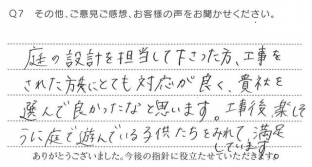 Q7 その他、ご意見ご感想、お客様の声をお聞かせください。
庭の設計を担当して下さった方、工事を
された方共にとても対応が良く、貴社を
選んで良かったなと思います。工事後、楽しそ
うに庭で遊んでいる子供たちをみれて、満足
しています。
ありがとうございました。今後の指針に役立たせていただきます。